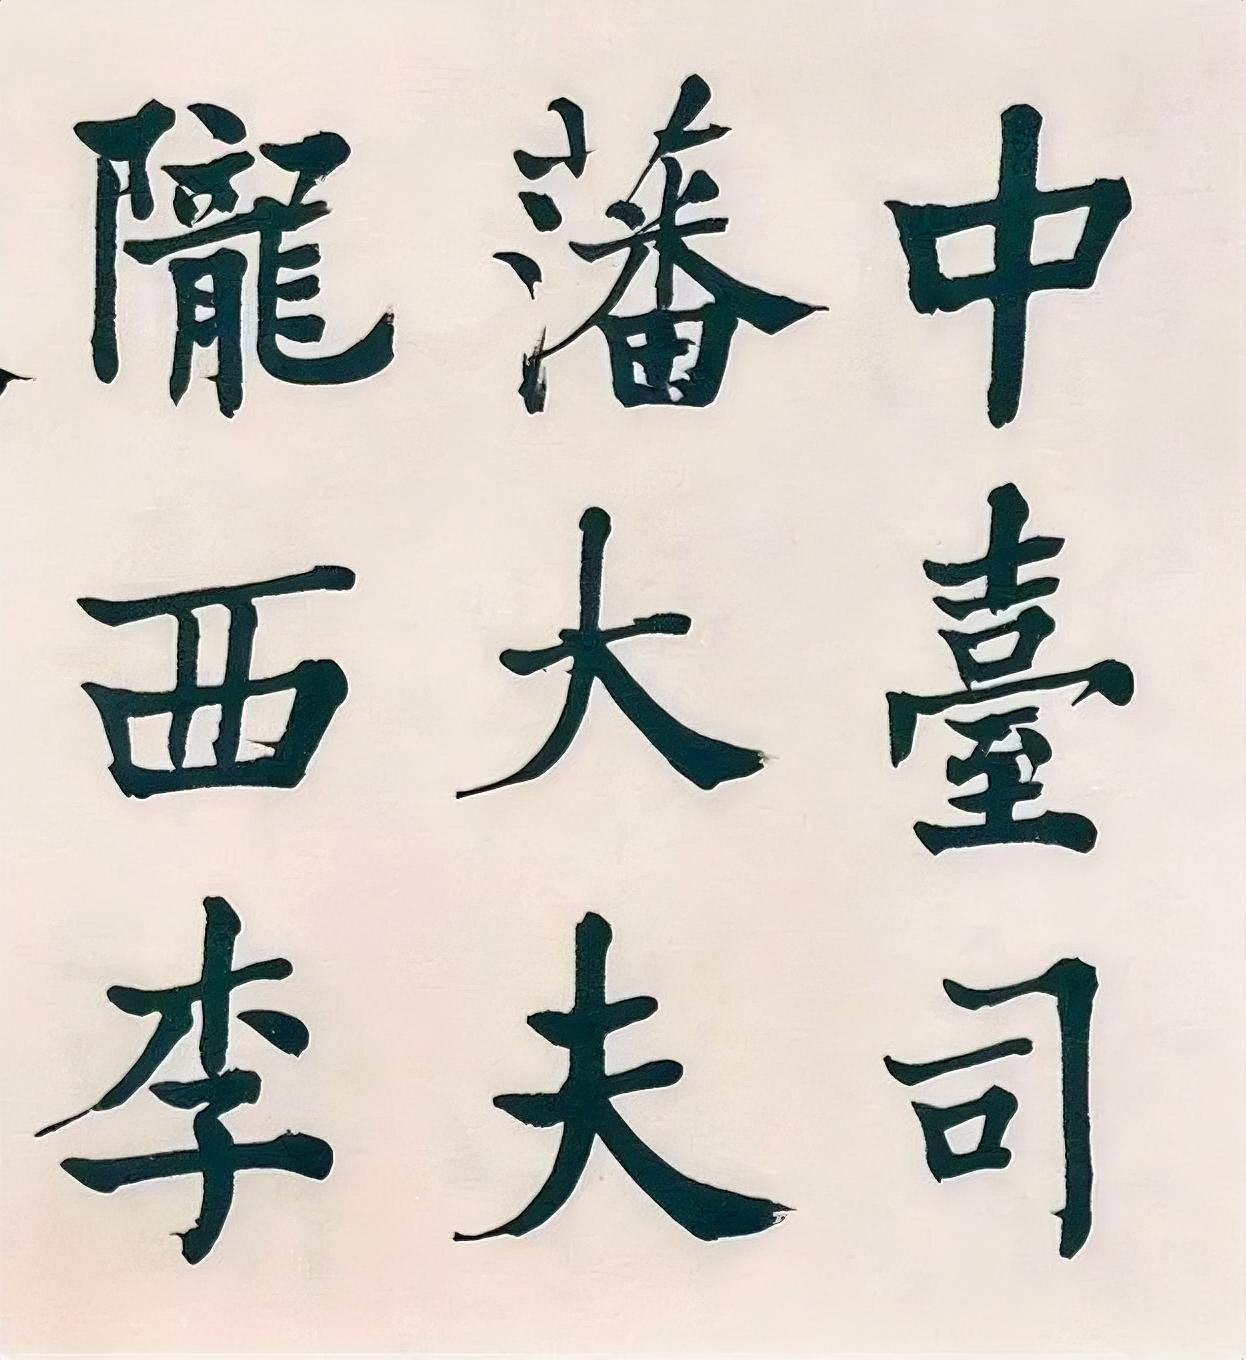 中臺司
藩大夫
隴西李